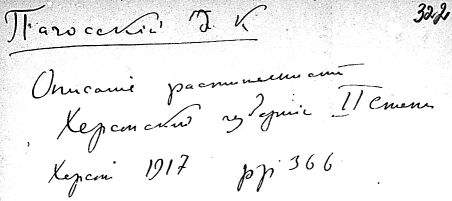 322
Пачосскій І К
Описаніе растительности
Херсонской губерніи II Степи
Херсон 1917 pp 366